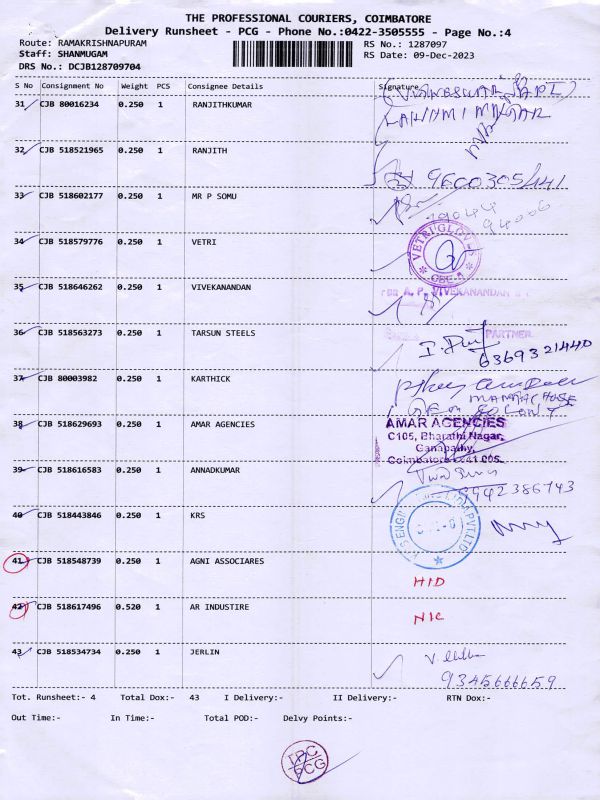 THE PROFESSIONAL COURIERS, COIMBATORE
Delivery Runsheet - PCG - Phone No.:0422-3505555 - Page No.:4
Route: RAMAKRISHNAPURAM RS No.: 1287097
Staff: SHANMUGAM RS Date: 09-Dec-2023
DRS No.: DCJB128709704
S No Consignment No Weight PCS Consignee Details Signature
31 CJB 80016234 0.250 1 RANJITHKUMAR
32 CJB 518521965 0.250 1 RANJITH
9600305141
33 CJB 518602177 0.250 1 MR P SOMU
94006
34 CJB 518579776 0.250 1 VETRI
VETRI GLO
CBE-
35 CJB 518646262 0.250 1 VIVEKANANDAN
FOR A. P. VIVEKANANDAN
36 CJB 518563273 0.250 1 TARSUN STEELS
PARTNER
6369321440
37 CJB 80003982 0.250 1 KARTHICK
38 CJB 518629693 0.250 1 AMAR AGENCIES
AMAR AGENCIES
C105, Bharathi Nagar,
Ganapathy,
Coimbatore - 641 005.
39 CJB 518616583 0.250 1 ANNADKUMAR
9942386743
40 CJB 518443846 0.250 1 KRS
PVT.LTD
41 CJB 518548739 0.250 1 AGNI ASSOCIARES
HID
42 CJB 518617496 0.520 1 AR INDUSTIRE
NIC
43 CJB 518534734 0.250 1 JERLIN
9345666659
Tot. Runsheet:- 4 Total Dox:- 43 I Delivery:- II Delivery:- RTN Dox:-
Out Time:- In Time:- Total POD:- Delvy Points:-
TPC
PCG